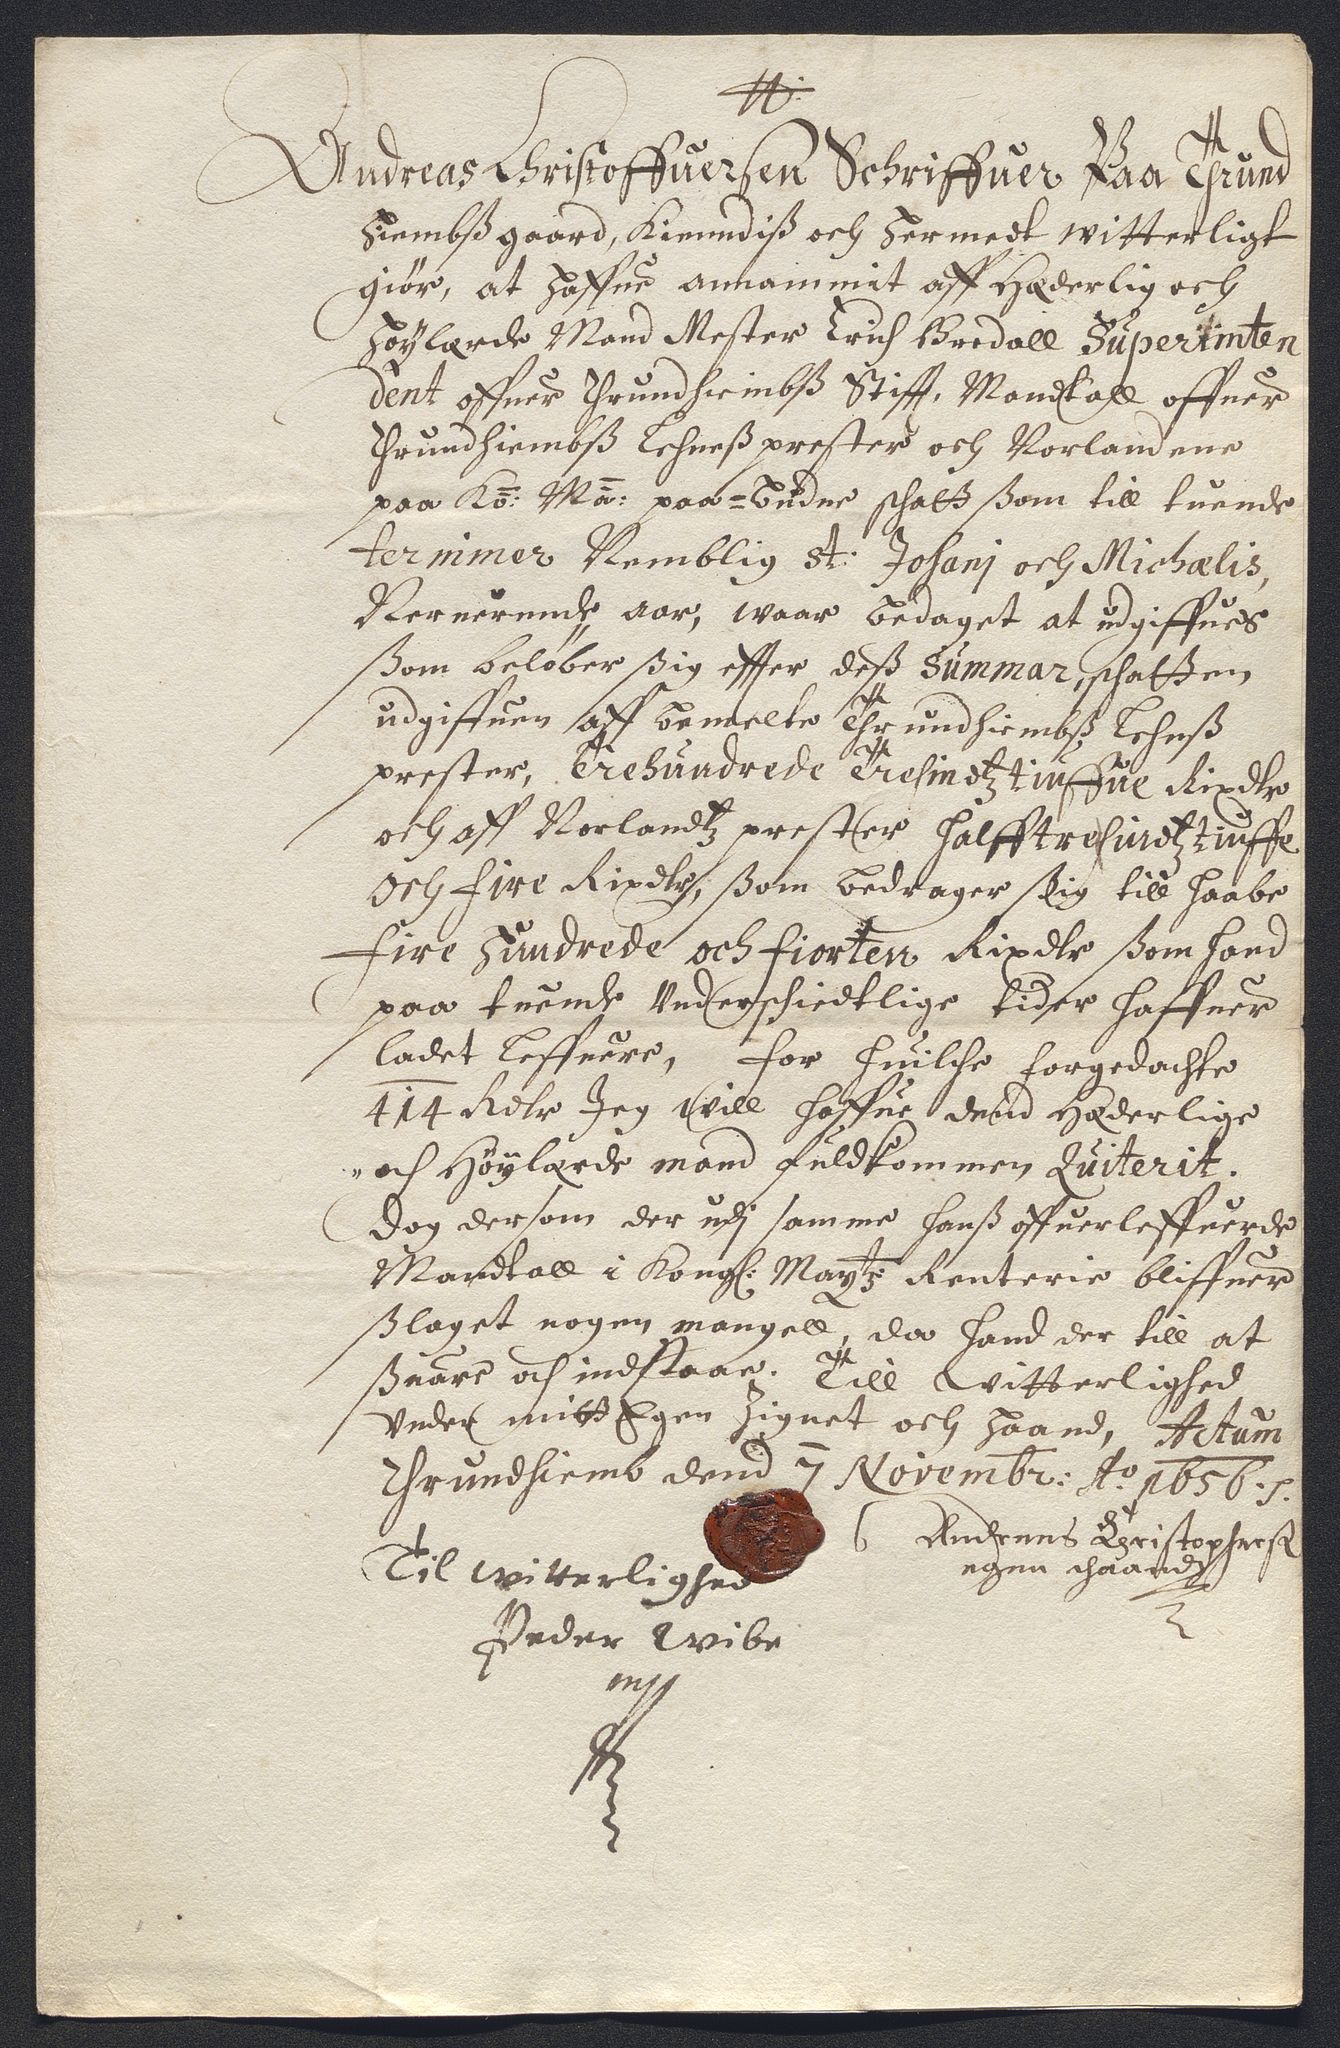 Andreas Christoffuersen Schriffuer Paa Thrund
hiembß gaard, Kiendiß och hermedt witterligt
giör, at haffue annammit aff Hæderlig och
höylærde Mand Mester Erich Bredall Superinten
dent offuer Thrundhiembß Stifft, Mandtall offuer
Thrundhiembß Lehnß prester och Norlandene
paa Ko: Ma: paa=budne schatt ßom till tuende
terminer Nemblig St: Johanj och Michælis,
Neruerende aar, waar bedaget at udgiffues
ßom beløber ßig effter deß Summar, schatten
udgiffuen aff bemelte Thrundhiembß Lehnß
prester, Trehundrede Tresindtztiuffue Rixdlr
och aff Norlandtz prester halfftresindtztiuffe
och fire Rixdlr, ßom bedrager ßig till haabe
fire hundrede och fiorten Rixdlr ßom hand
paa tuende Underschiedtlige tider haffuer
ladet Leffuere, for huilche forgedachte
414 Rdlr Jeg vill haffue dend Hæderlige
och Höylærde mand fuldkommen Quiterit.
Dog dersom der udj samme hanß offuerleffuerde
Mandtall i Kongl: Maytz: Renterie bliffuer
ßlaget nogen mangell, da hand der till at
ßuare och indstaae. Till Vitterlighed
Under mitt Egen Zignet och haand, Actum
Thrundhiemb dend 7 Novembr: Ao 1656.
Andreas Christophersøn
egen haandt
Til witterlighed
Peder Wibe
mpp